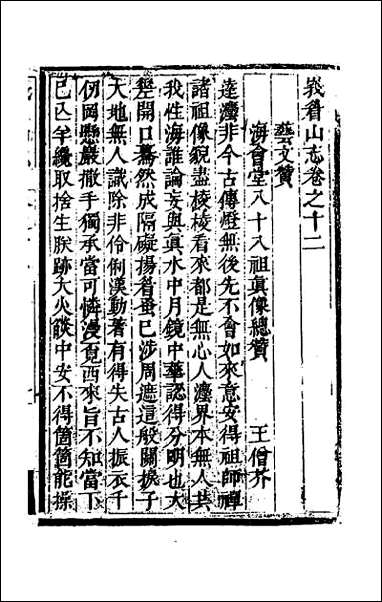 峩眉山志卷之十二
藝文贊
海會堂八十八祖眞像總贊 王僧芥
達灋非今古傳燈無後先不會如來意安得祖師禪
諸祖像貌盡棱棱看來都是無心人灋界本無人共
我性海誰論妄與眞水中月鏡中華認得分明也大
壆開口驀然成隔礙揚眉蚤已涉周遮這般關捩子
大地無人識除非伶俐漢動著有得失古人振衣千
仞岡懸巖撒手獨承當可憐漫覔西來旨不知當下
已亾羊纔取捨生朕跡大火燄中安不得箇箇能操